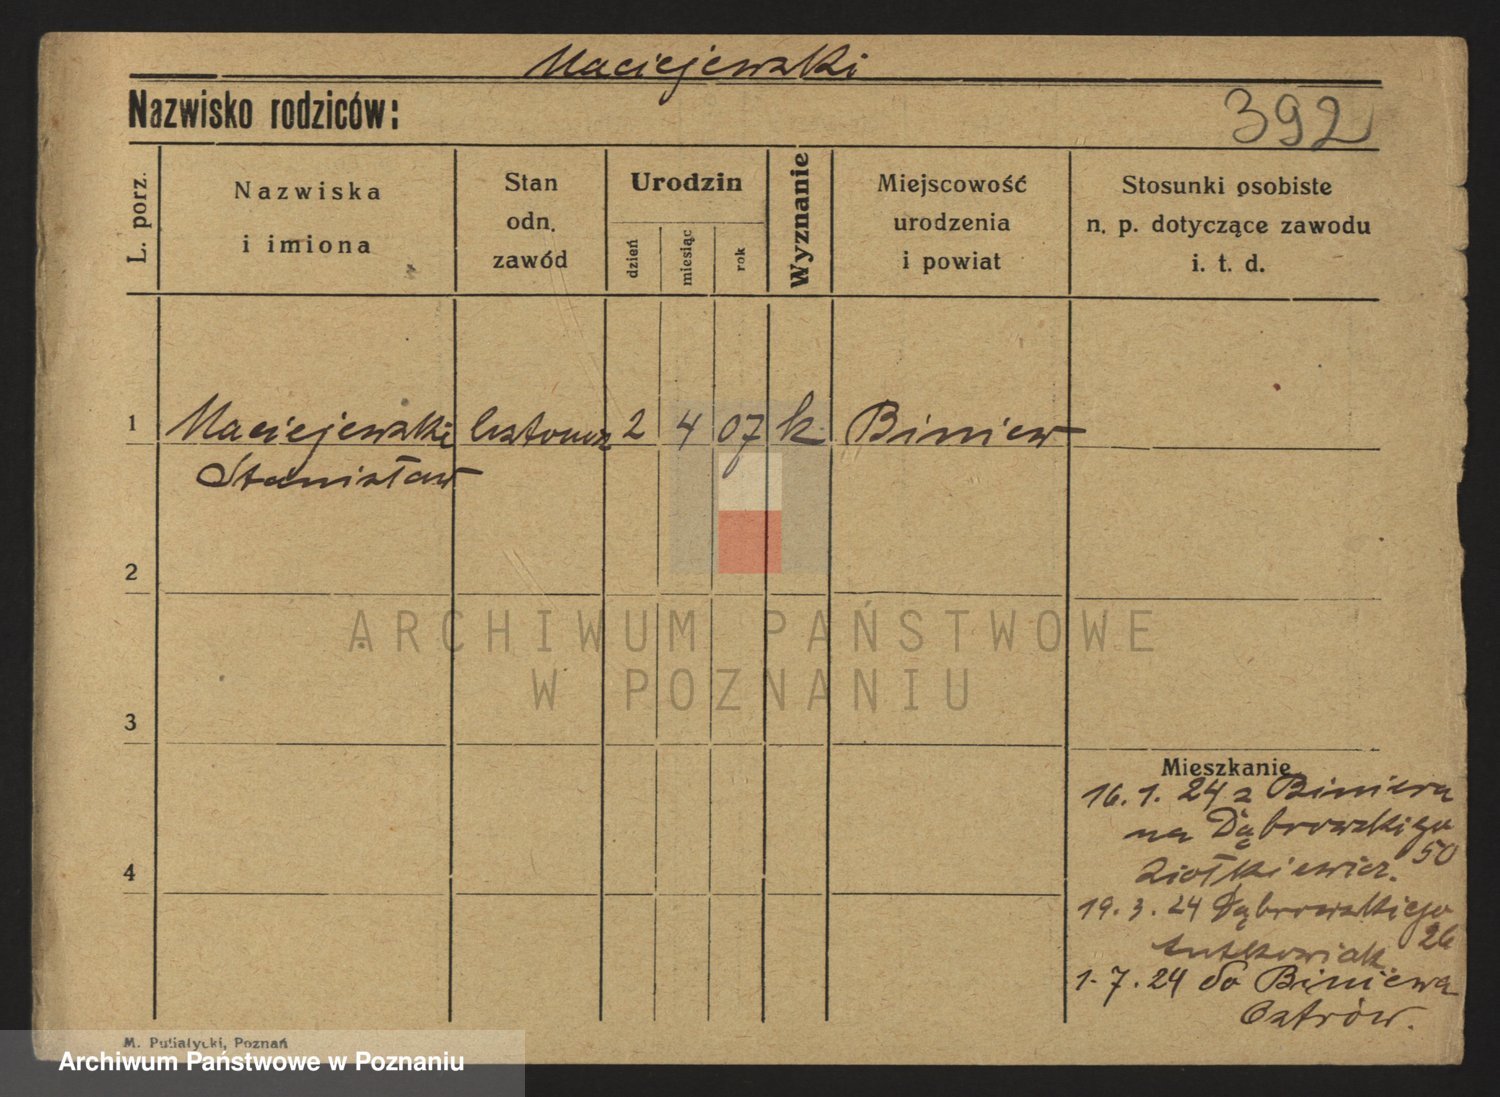 Maciejewski
Nazwisko rodziców:
392
L. porz.
Nazwiska
i imiona
Stan
odn.
zawód
Urodzin
dzień
miesiąc
rok
Wyznanie
Miejscowość
urodzenia
i powiat
Stosunki osobiste
n. p. dotyczące zawodu
i. t. d.
1
Maciejewski
2 4 07 k Biniew
Stanisław
2
ARCHIWUM PAŃSTWOWE
W POZNANIU
3
4
Mieszkanie
16.1.24 z Biniewa
na Dąbrowskiego
50
Ziołkiewicz.
19.3.24 Dąbrowskiego
26
Antkowiak
1.7.24 do Biniewa
Ostrów.
M. Putiatycki, Poznań
Archiwum Państwowe w Poznaniu